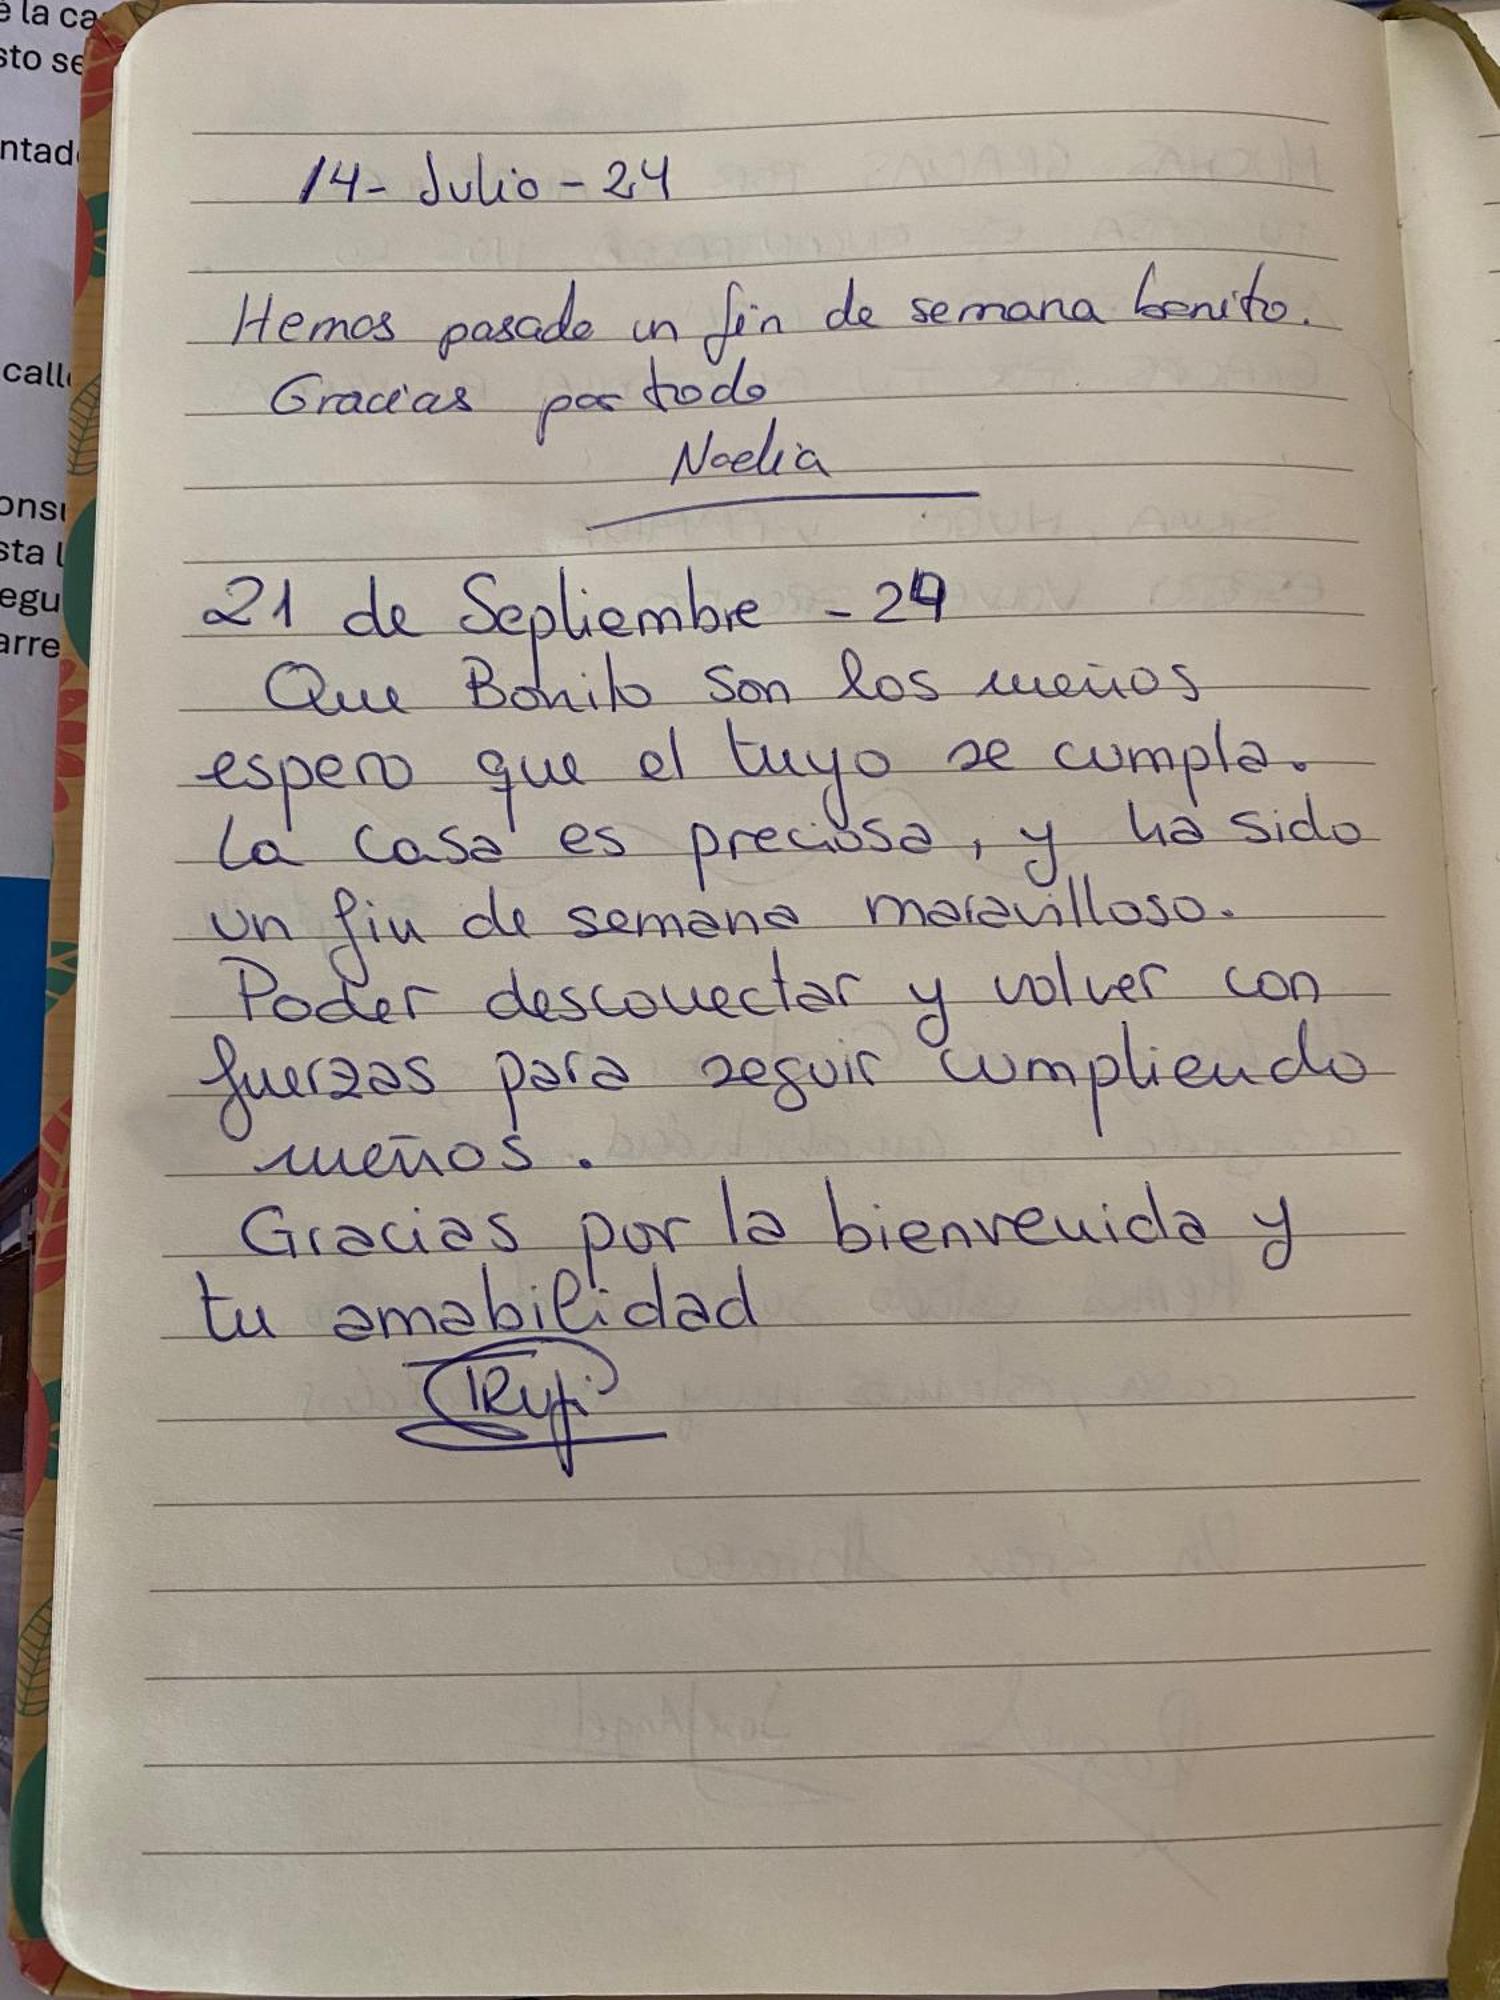 é la ca
sto se
ntad
calle
onsu
sta l
egu
arre
14- Julio - 24
Hemos pasado un fin de semana bonito.
Gracias por todo
Noelia
21 de Septiembre - 24
Que Bonito son los sueños
espero que el tuyo se cumpla.
La casa es preciosa, y ha sido
un fin de semana maravilloso.
Poder desconectar y volver con
fuerzas para seguir cumpliendo
sueños.
Gracias por la bienvenida y
tu amabilidad
Rufi